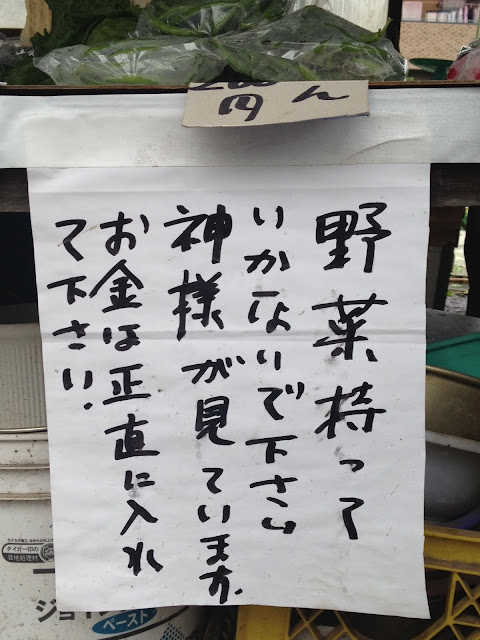 円
ん
野菜持って
いかないで下さい
神様が見ています。
お金は正直に入れ
て下さい。
タイガー印の
ペースト